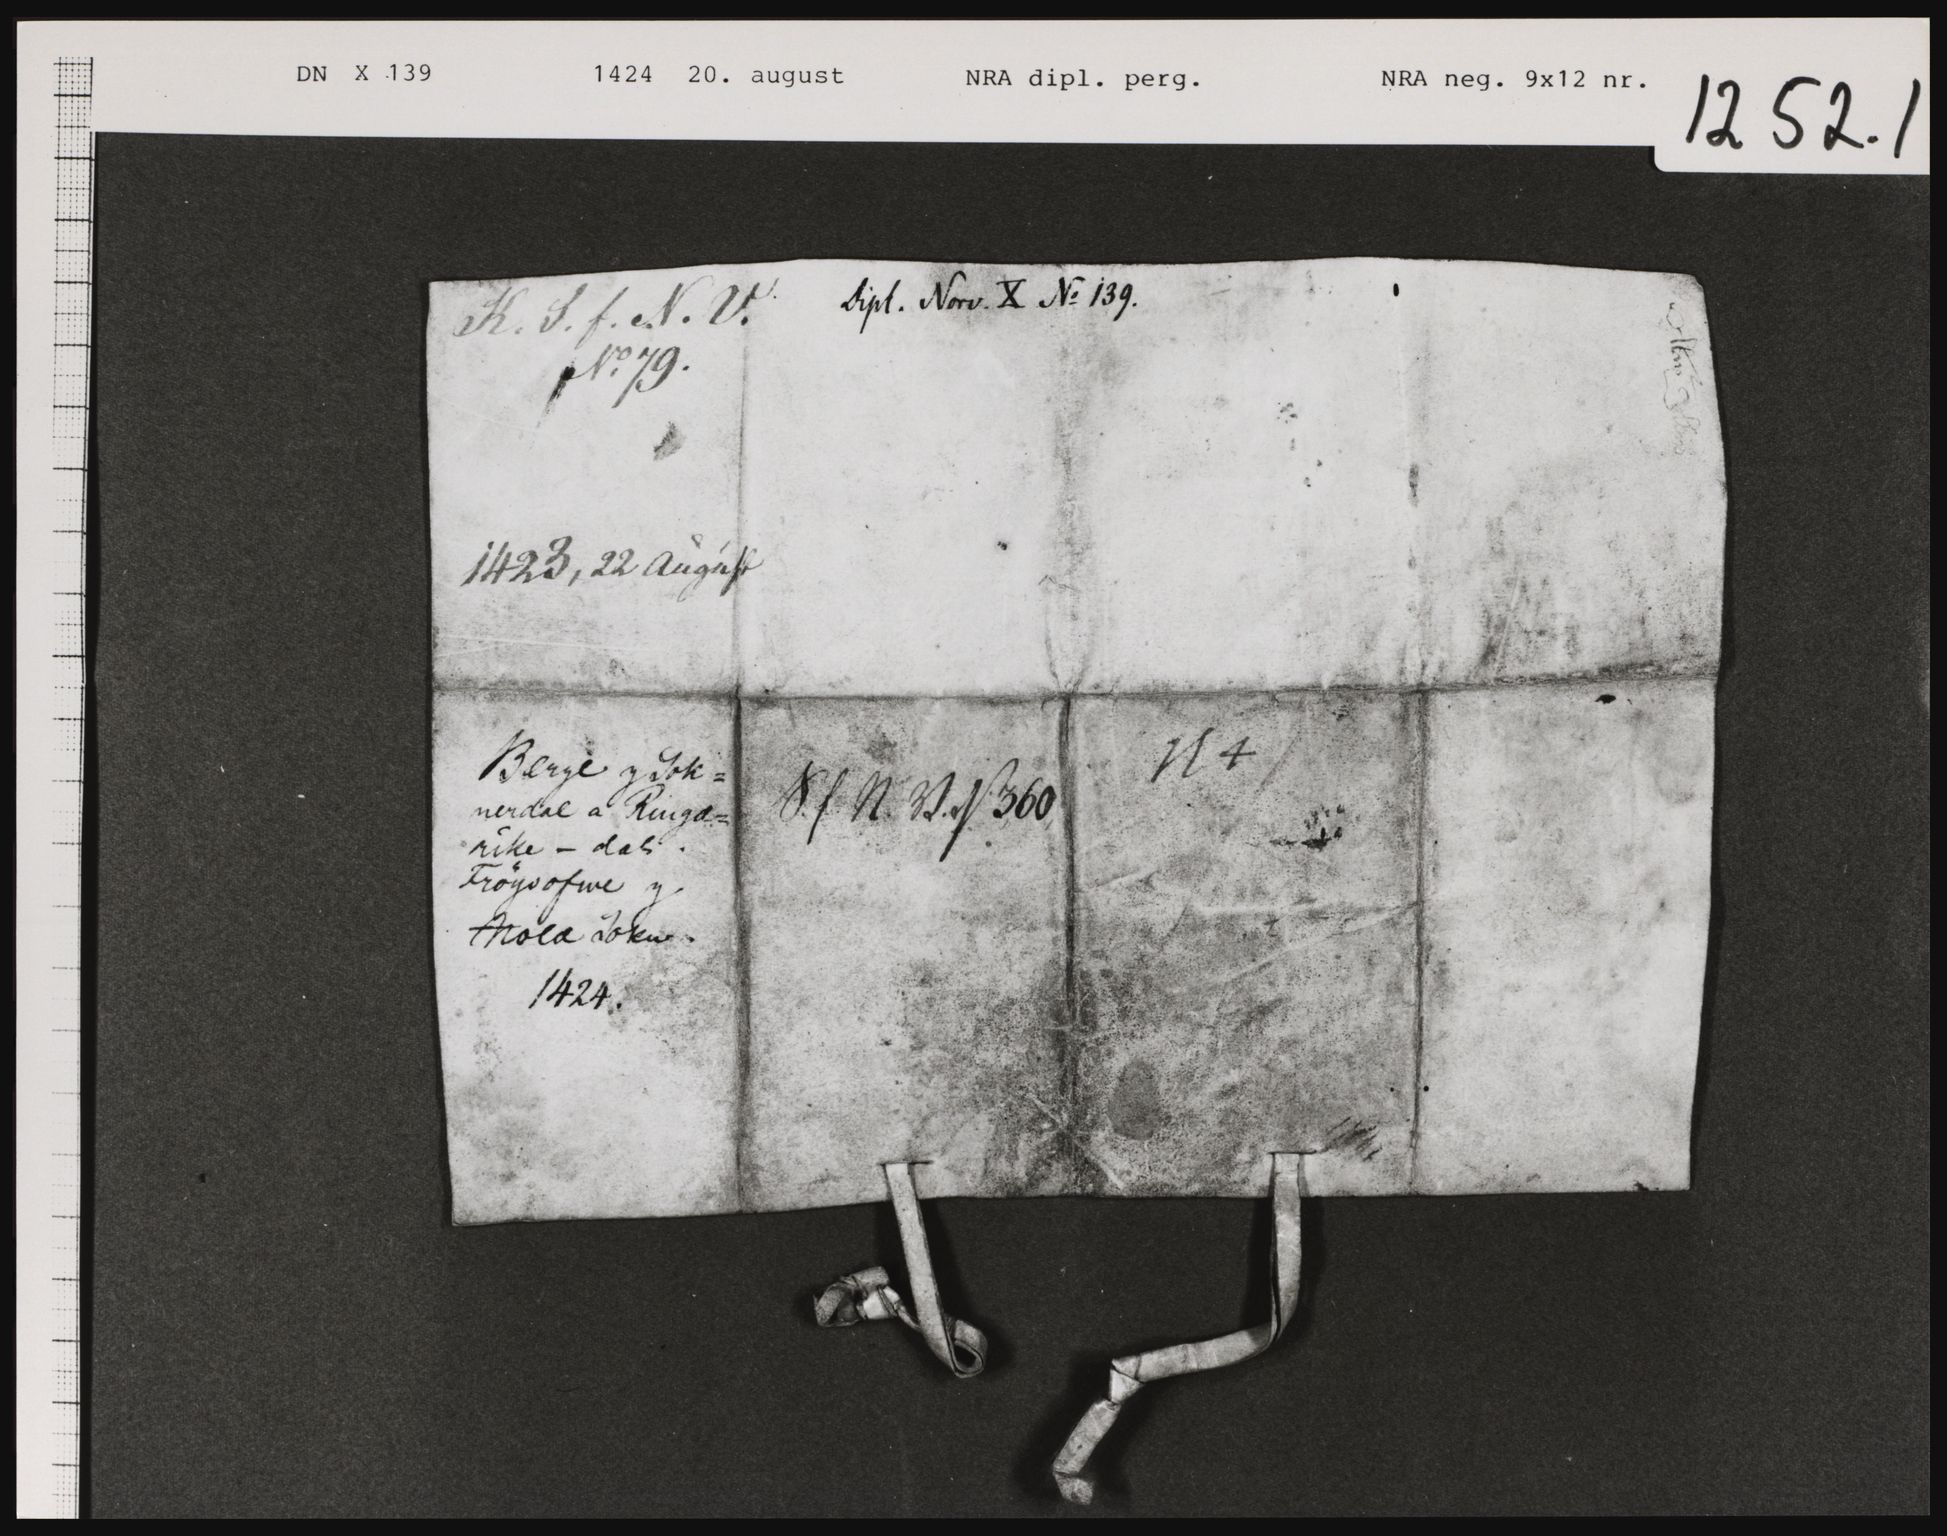 DN X 139 1424 20. august NRA dipl. perg. NRA neg. 9x12 nr. 1252.1
K. S. f. N. V. Dipl. Norv. X No 139.
No 79.
1423, 22 August
Berge y Sok=
nerdal a Ringa=
rike - dat.
Fröysofwe y
Molda Sokn.
1424.
S. f. N. V. N 360
N 4